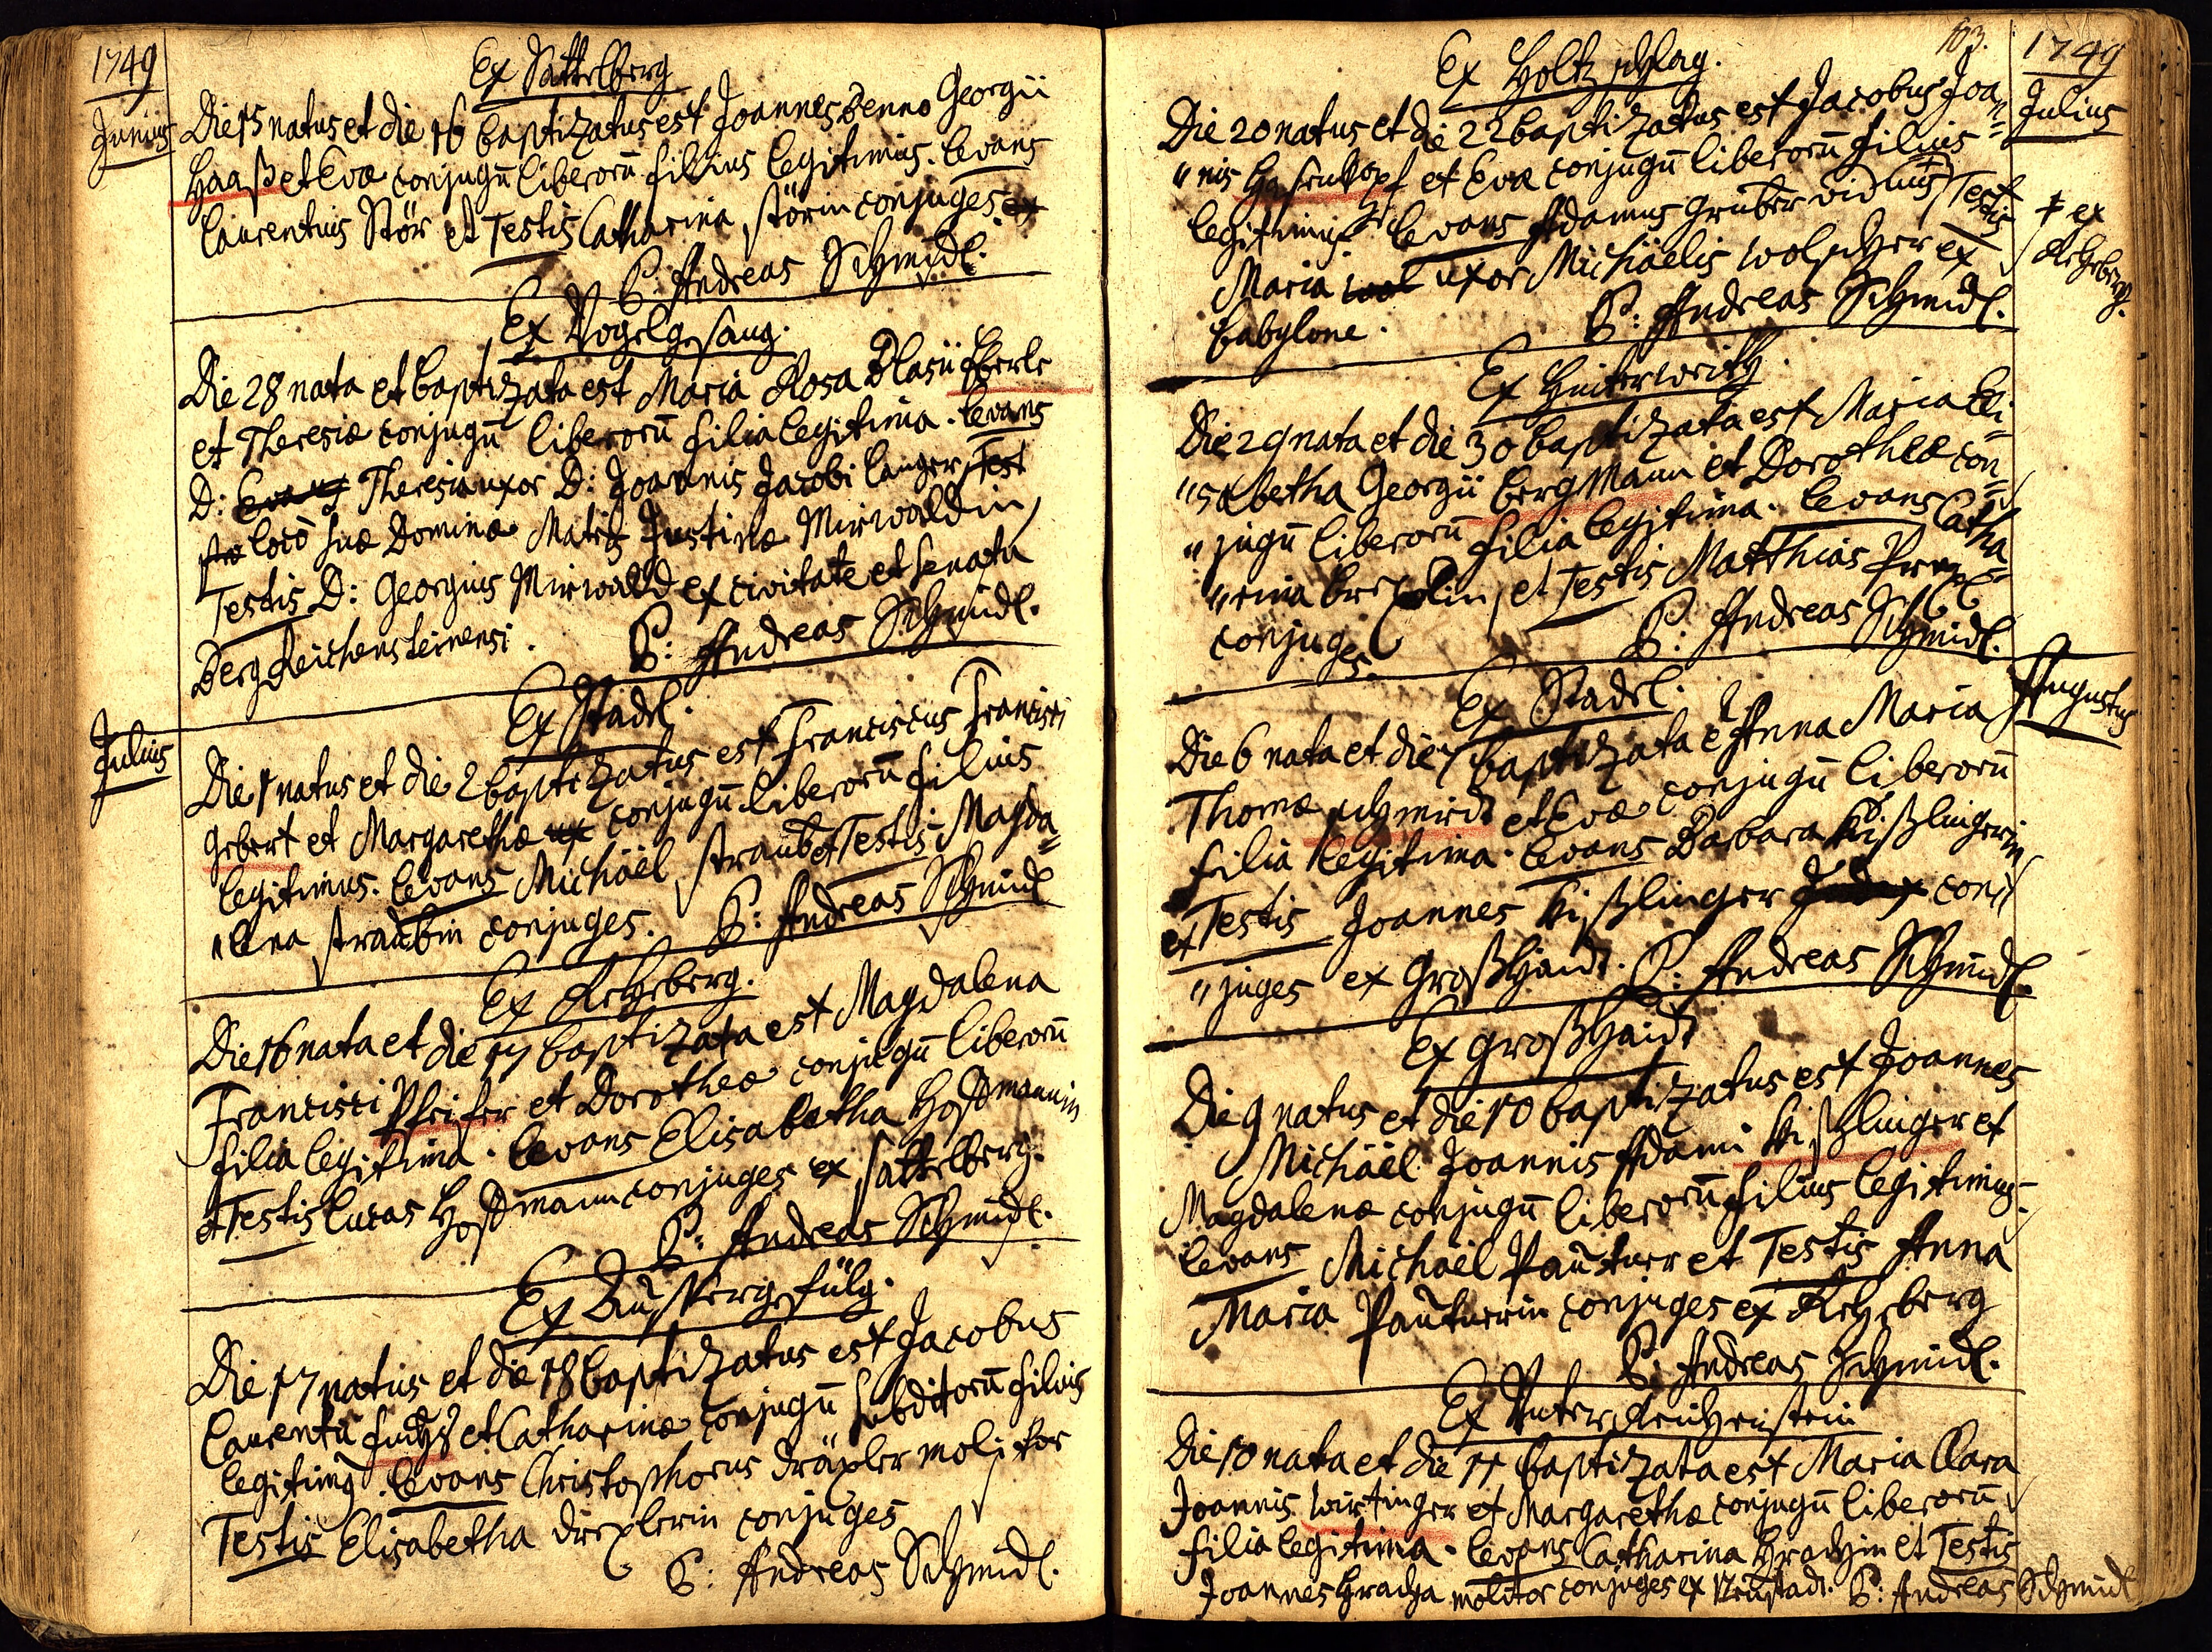 1749
Ex Sattelberg
Junius
Die 15 natus et die 16 baptizatus est Joannes Benno Georgii
Haaß et Evæ conjugū liberorū filius legitimus. Levans
Laurentius Stör et Testis Catharina störin conjuges ex
P: Andreas Schmidl.
Ex Vogelgesang.
Die 28 nata et baptizata est Maria Rosa Blasii Eberle
et Theresiæ conjugū liberorū filia legitima. Levans
D: Theresia uxor D: Joannis Jacobi langer, Test
loco suæ Dominæ Matris Justinæ Mirwaldin,
Testis D: Georgius Mirwald ex civitate et senatu
BergReichensteinensi.
P: Andreas Schmidl.
Ex Stadl.
Julius
Die 1 natus et die 2 baptizatus est Franciscus Francisci
Gebert et Margarethæ ux conjugū liberorū filius
legitimus. Levans Michäel straub et Testis Magda=
"lena straubin conjuges. P: Andreas Schmidl
Ex Rehberg.
Die 16 nata et die 17 baptizata est Magdalena
Francisci Pfeifer et Dorotheæ conjugū liberorū
filia legitima. Levans Elisabetha Hoffmannin
et Testis Lucas Hoffmann conjuges ex sattelberg.
P: Andreas Schmidl.
Die 17 natus et die 18 baptizatus est Jacobus
Laurentii fuchs et Catharinæ conjugū subditorū filius
legitimꝯ. Levans Christophorus dräxler molitor
Testis Elisabetha drexlerin conjuges
P: Andreas Schmidl.
163.
1749
Ex Holtzschlag.
Julius
Die 20 natus et die 22 baptizatus est Jacobus Joan=
"nis Hasenkopf et Evæ conjugū liberorū filius
legitimus. Levans Adamus gruber viduus, Testis
ǂ ex
Rehberg.
Maria wol uxor Michäelis wolscher ex
babylone.
P: Andreas Schmidl.
Ex Hinterweith.
Die 29 nata et die 30 baptizata est Maria Eli=
"sabetha Georgii bergMann et Dorotheæ con=
"jugū liberorū filia legitima. Levans Catha=
"rina et Testis Matthias
conjuges.
P: Andreas Schmidl.
Ex Stadl.
Augustus
Die 6 nata et die 7 baptizata ē Anna Maria
Thomæ schmirdt et Evæ conjugū liberorū
filia legitima. Levans Barbara kißlingerin
et Testis Joannes kißlinger con=
"juges ex Großhaidt. P: Andreas Schmidl.
Ex großhaidt
Die 9 natus et die 10 baptizatus est Joannes
Michäel Joannis Adami kißlinger et
Magdalenæ conjugū liberorū filius legitimus.
Levans Michäel Pauturr et Testis Anna
Maria Pauturrin conjuges ex Rehberg
P: Andreas Schmidl.
Ex Unter Reichenstein
Die 10 nata et die 11 baptizata est Maria Clara
Joannis wirtinger et Margarethæ conjugū liberorū
filia legitima. Levans Catharina Hrachin et Testis
Joannes Hracha molitor conjuges ex Neustadt. P: Andreas Schmidl